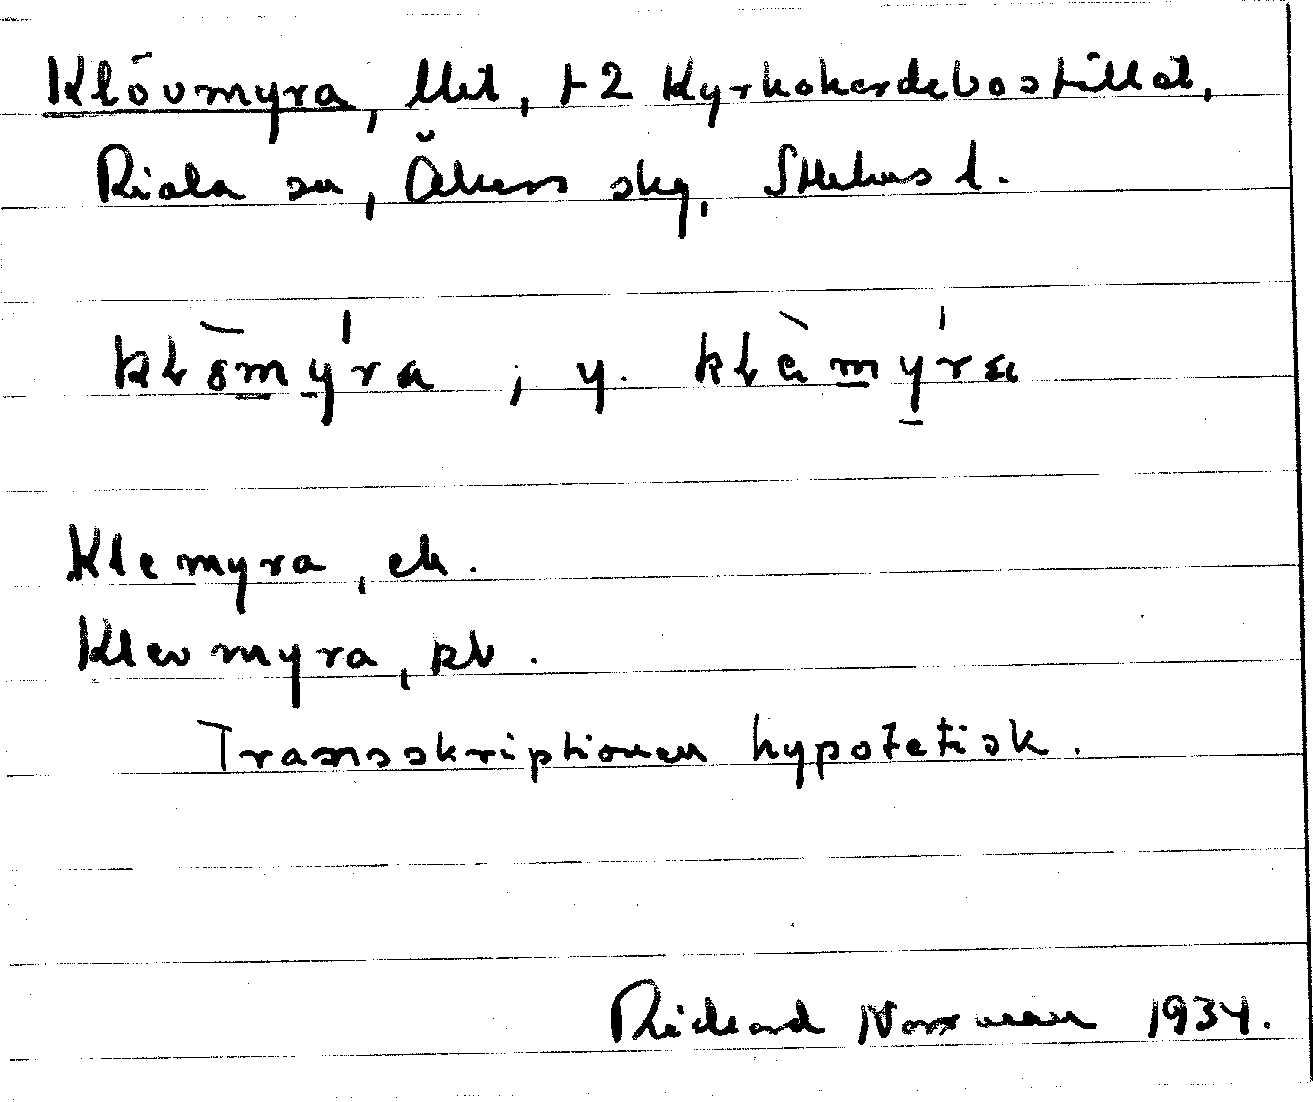 Klövmyra, lht, t 2 Kyrkoherdebostället,
Riala sn, Åkers skg, Sthlms l.
klömýra, y. klèmýra
Klemyra, ek.
Klevmyra, kb.
Transskriptionen hypotetisk.
Rickard Norrman 1934.